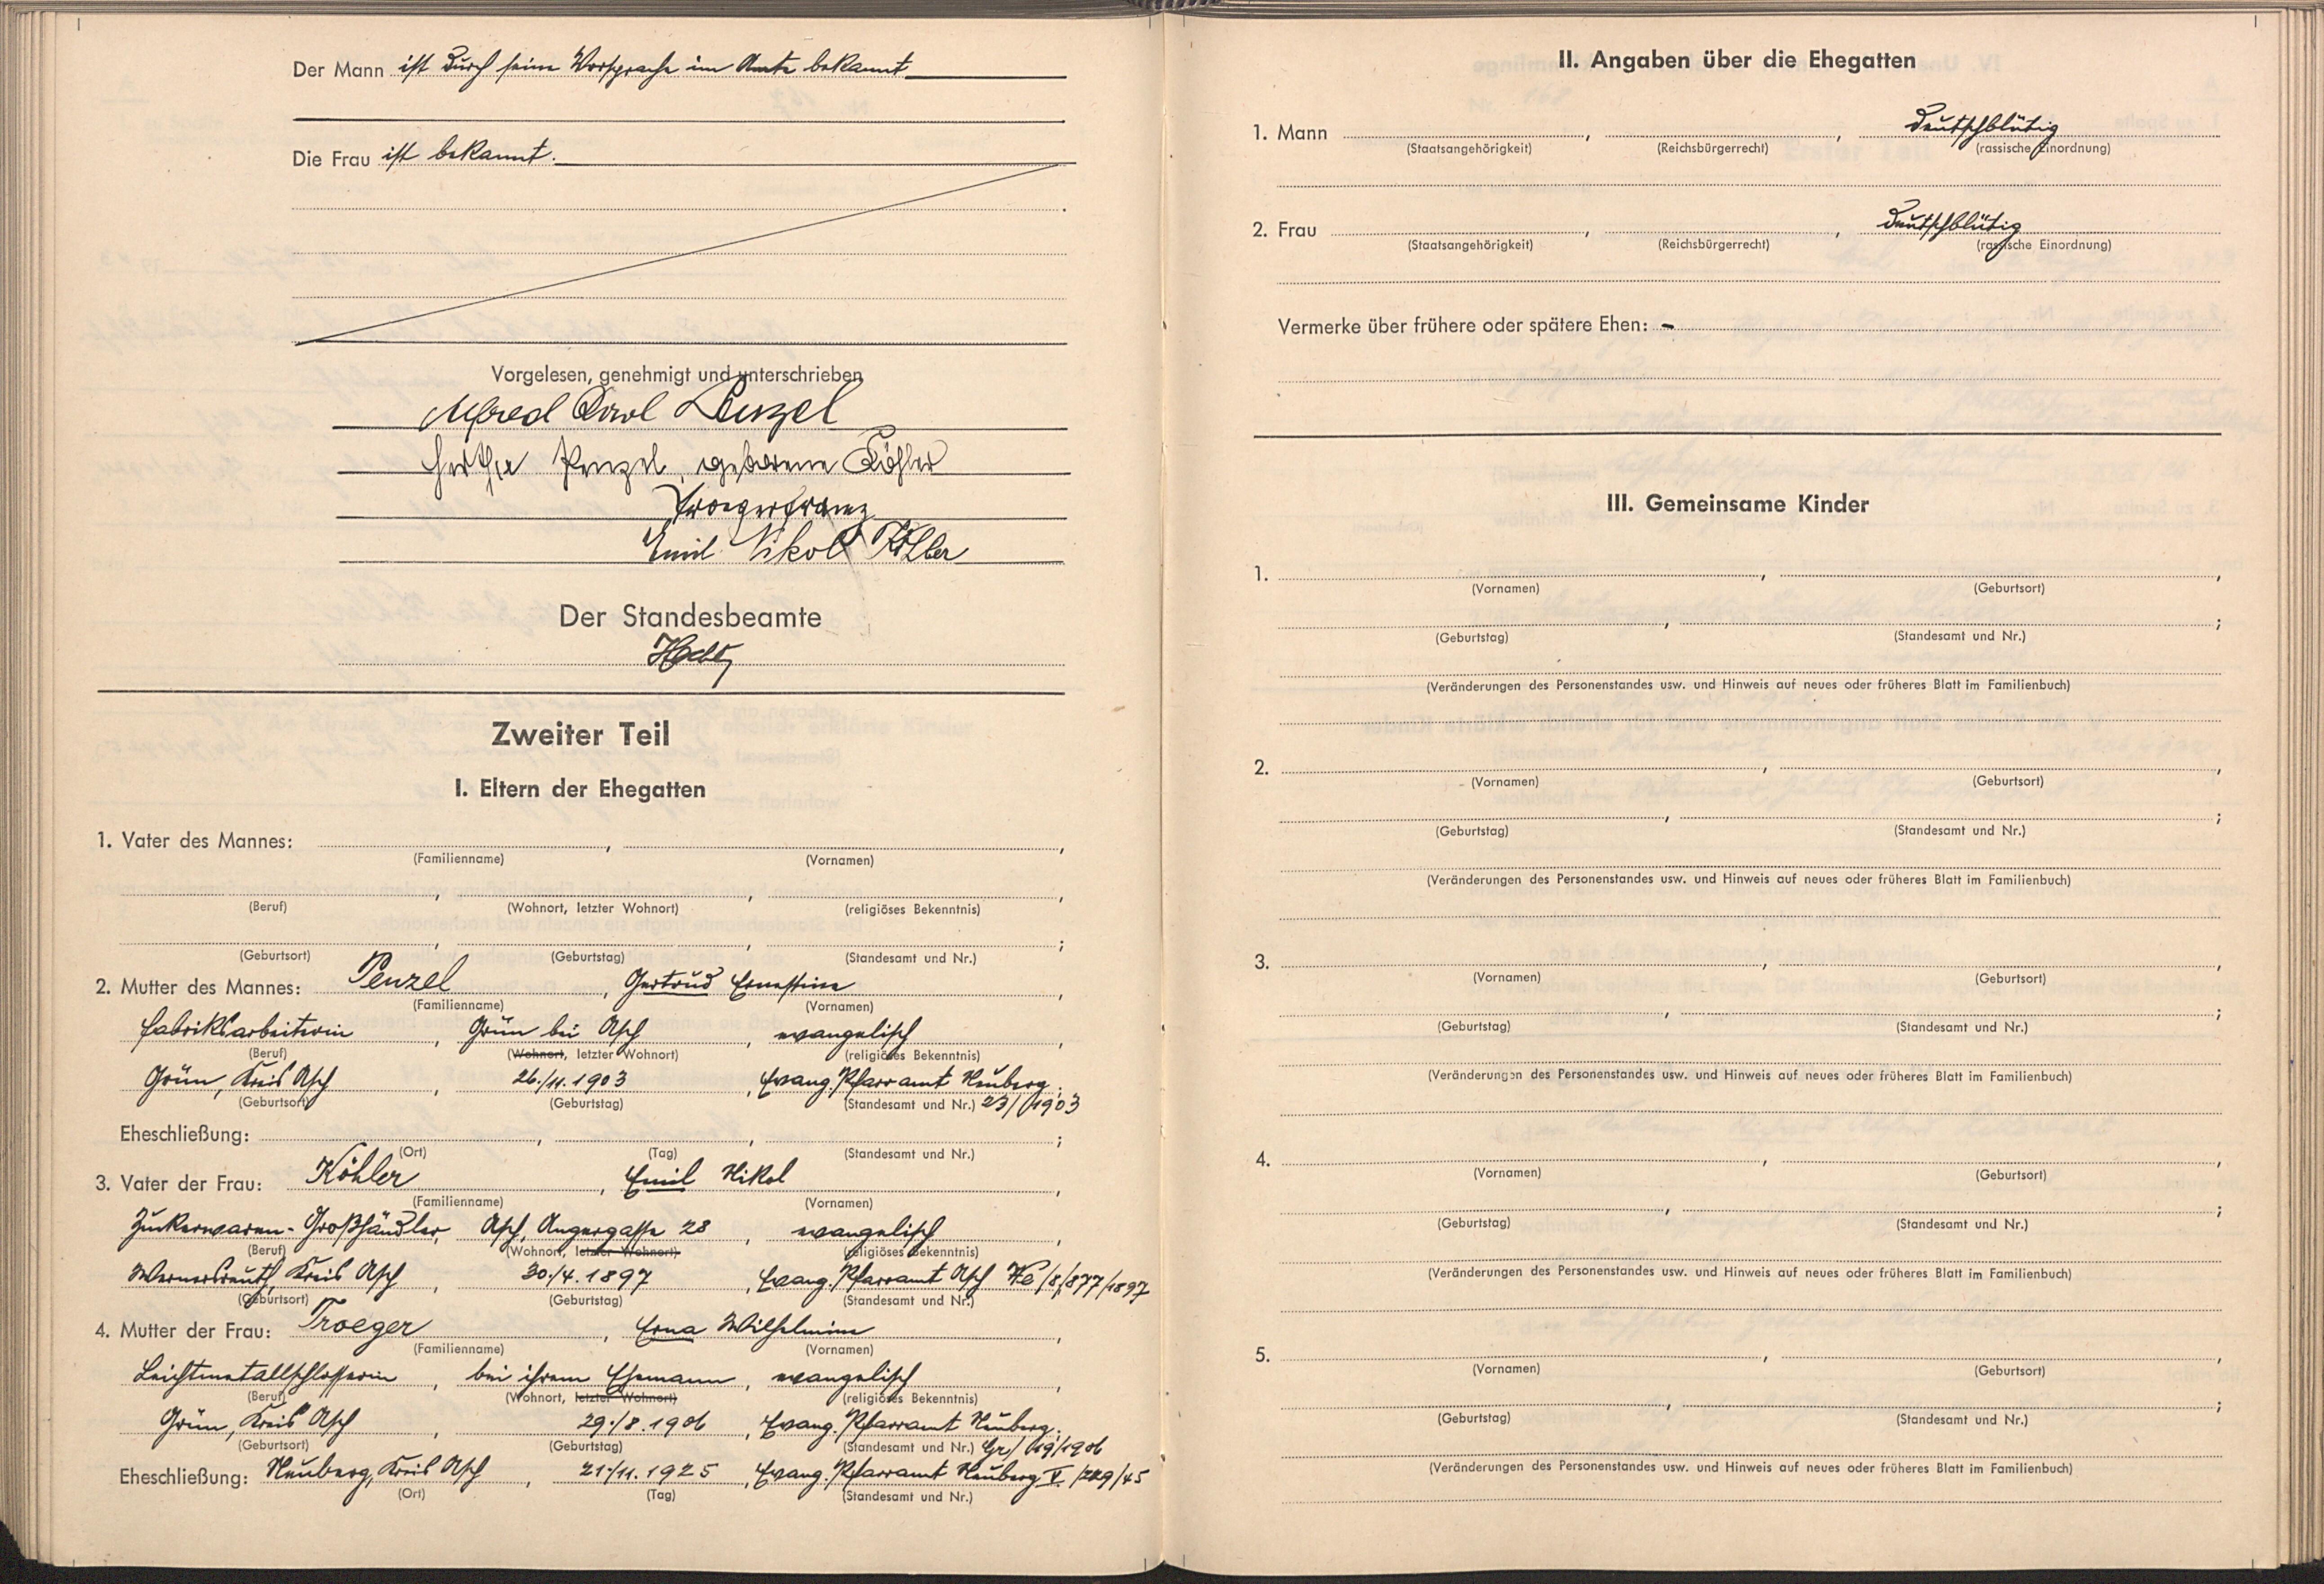 Der Mann ist durch seine Vorsprache im Amte bekannt
Die Frau ist bekannt.
Vorgelesen, genehmigt und unterschrieben
Alfred Karl Penzel
Hertha Penzel geborene Köhler
Troeger Franz
Emil Nikol Köhler
Der Standesbeamte
Zweiter Teil
I. Eltern der Ehegatten
1. Vater des Mannes: , ,
(Familienname) (Vornamen)
, , ,
(Beruf) (Wohnort, letzter Wohnort) (religiöses Bekenntnis)
, , ;
(Geburtsort) (Geburtstag) (Standesamt und Nr.)
2. Mutter des Mannes: Penzel , Gertrud Ernestine ,
(Familienname) (Vornamen)
Fabriksarbeiterin , Grün bei Asch , evangelisch ,
(Beruf) (Wohnort, letzter Wohnort) (religiöses Bekenntnis)
Grün, Kreis Asch , 26./11.1903 , Evang. Pfarramt Neuberg ;
(Geburtsort) (Geburtstag) (Standesamt und Nr.) 23/1903
Eheschließung: , , ;
(Ort) (Tag) (Standesamt und Nr.)
3. Vater der Frau: Köhler , Emil Nikol ,
(Familienname) (Vornamen)
Zuckerwaren-Großhändler, Asch, Angergasse 28 , evangelisch ,
(Beruf) (Wohnort, letzter Wohnort) (religiöses Bekenntnis)
Wernersreuth, Kreis Asch , 30./4.1897 , Evang. Pfarramt Asch We/8/877/1897
(Geburtsort) (Geburtstag) (Standesamt und Nr.)
4. Mutter der Frau: Troeger , Erna Wilhelmine ,
(Familienname) (Vornamen)
Leichtmetallschlosserin , bei ihrem Ehemann , evangelisch ,
(Beruf) (Wohnort, letzter Wohnort) (religiöses Bekenntnis)
Grün, Kreis Asch , 29./8.1906 , Evang. Pfarramt Neuberg ;
(Geburtsort) (Geburtstag) (Standesamt und Nr.) Gr/19/1906
Eheschließung: Neuberg, Kreis Asch , 21./11.1925 , Evang. Pfarramt Neuberg V./229/45
(Ort) (Tag) (Standesamt und Nr.)
II. Angaben über die Ehegatten
1. Mann , , deutschblütig
(Staatsangehörigkeit) (Reichsbürgerrecht) (rassische Einordnung)
2. Frau , , deutschblütig
(Staatsangehörigkeit) (Reichsbürgerrecht) (rassische Einordnung)
Vermerke über frühere oder spätere Ehen: -
III. Gemeinsame Kinder
1. , ,
(Vornamen) (Geburtsort)
, ;
(Geburtstag) (Standesamt und Nr.)
(Veränderungen des Personenstandes usw. und Hinweis auf neues oder früheres Blatt im Familienbuch)
2. , ,
(Vornamen) (Geburtsort)
, ;
(Geburtstag) (Standesamt und Nr.)
(Veränderungen des Personenstandes usw. und Hinweis auf neues oder früheres Blatt im Familienbuch)
3. , ,
(Vornamen) (Geburtsort)
, ;
(Geburtstag) (Standesamt und Nr.)
(Veränderungen des Personenstandes usw. und Hinweis auf neues oder früheres Blatt im Familienbuch)
4. , ,
(Vornamen) (Geburtsort)
, ;
(Geburtstag) (Standesamt und Nr.)
(Veränderungen des Personenstandes usw. und Hinweis auf neues oder früheres Blatt im Familienbuch)
5. , ,
(Vornamen) (Geburtsort)
, ;
(Geburtstag) (Standesamt und Nr.)
(Veränderungen des Personenstandes usw. und Hinweis auf neues oder früheres Blatt im Familienbuch)